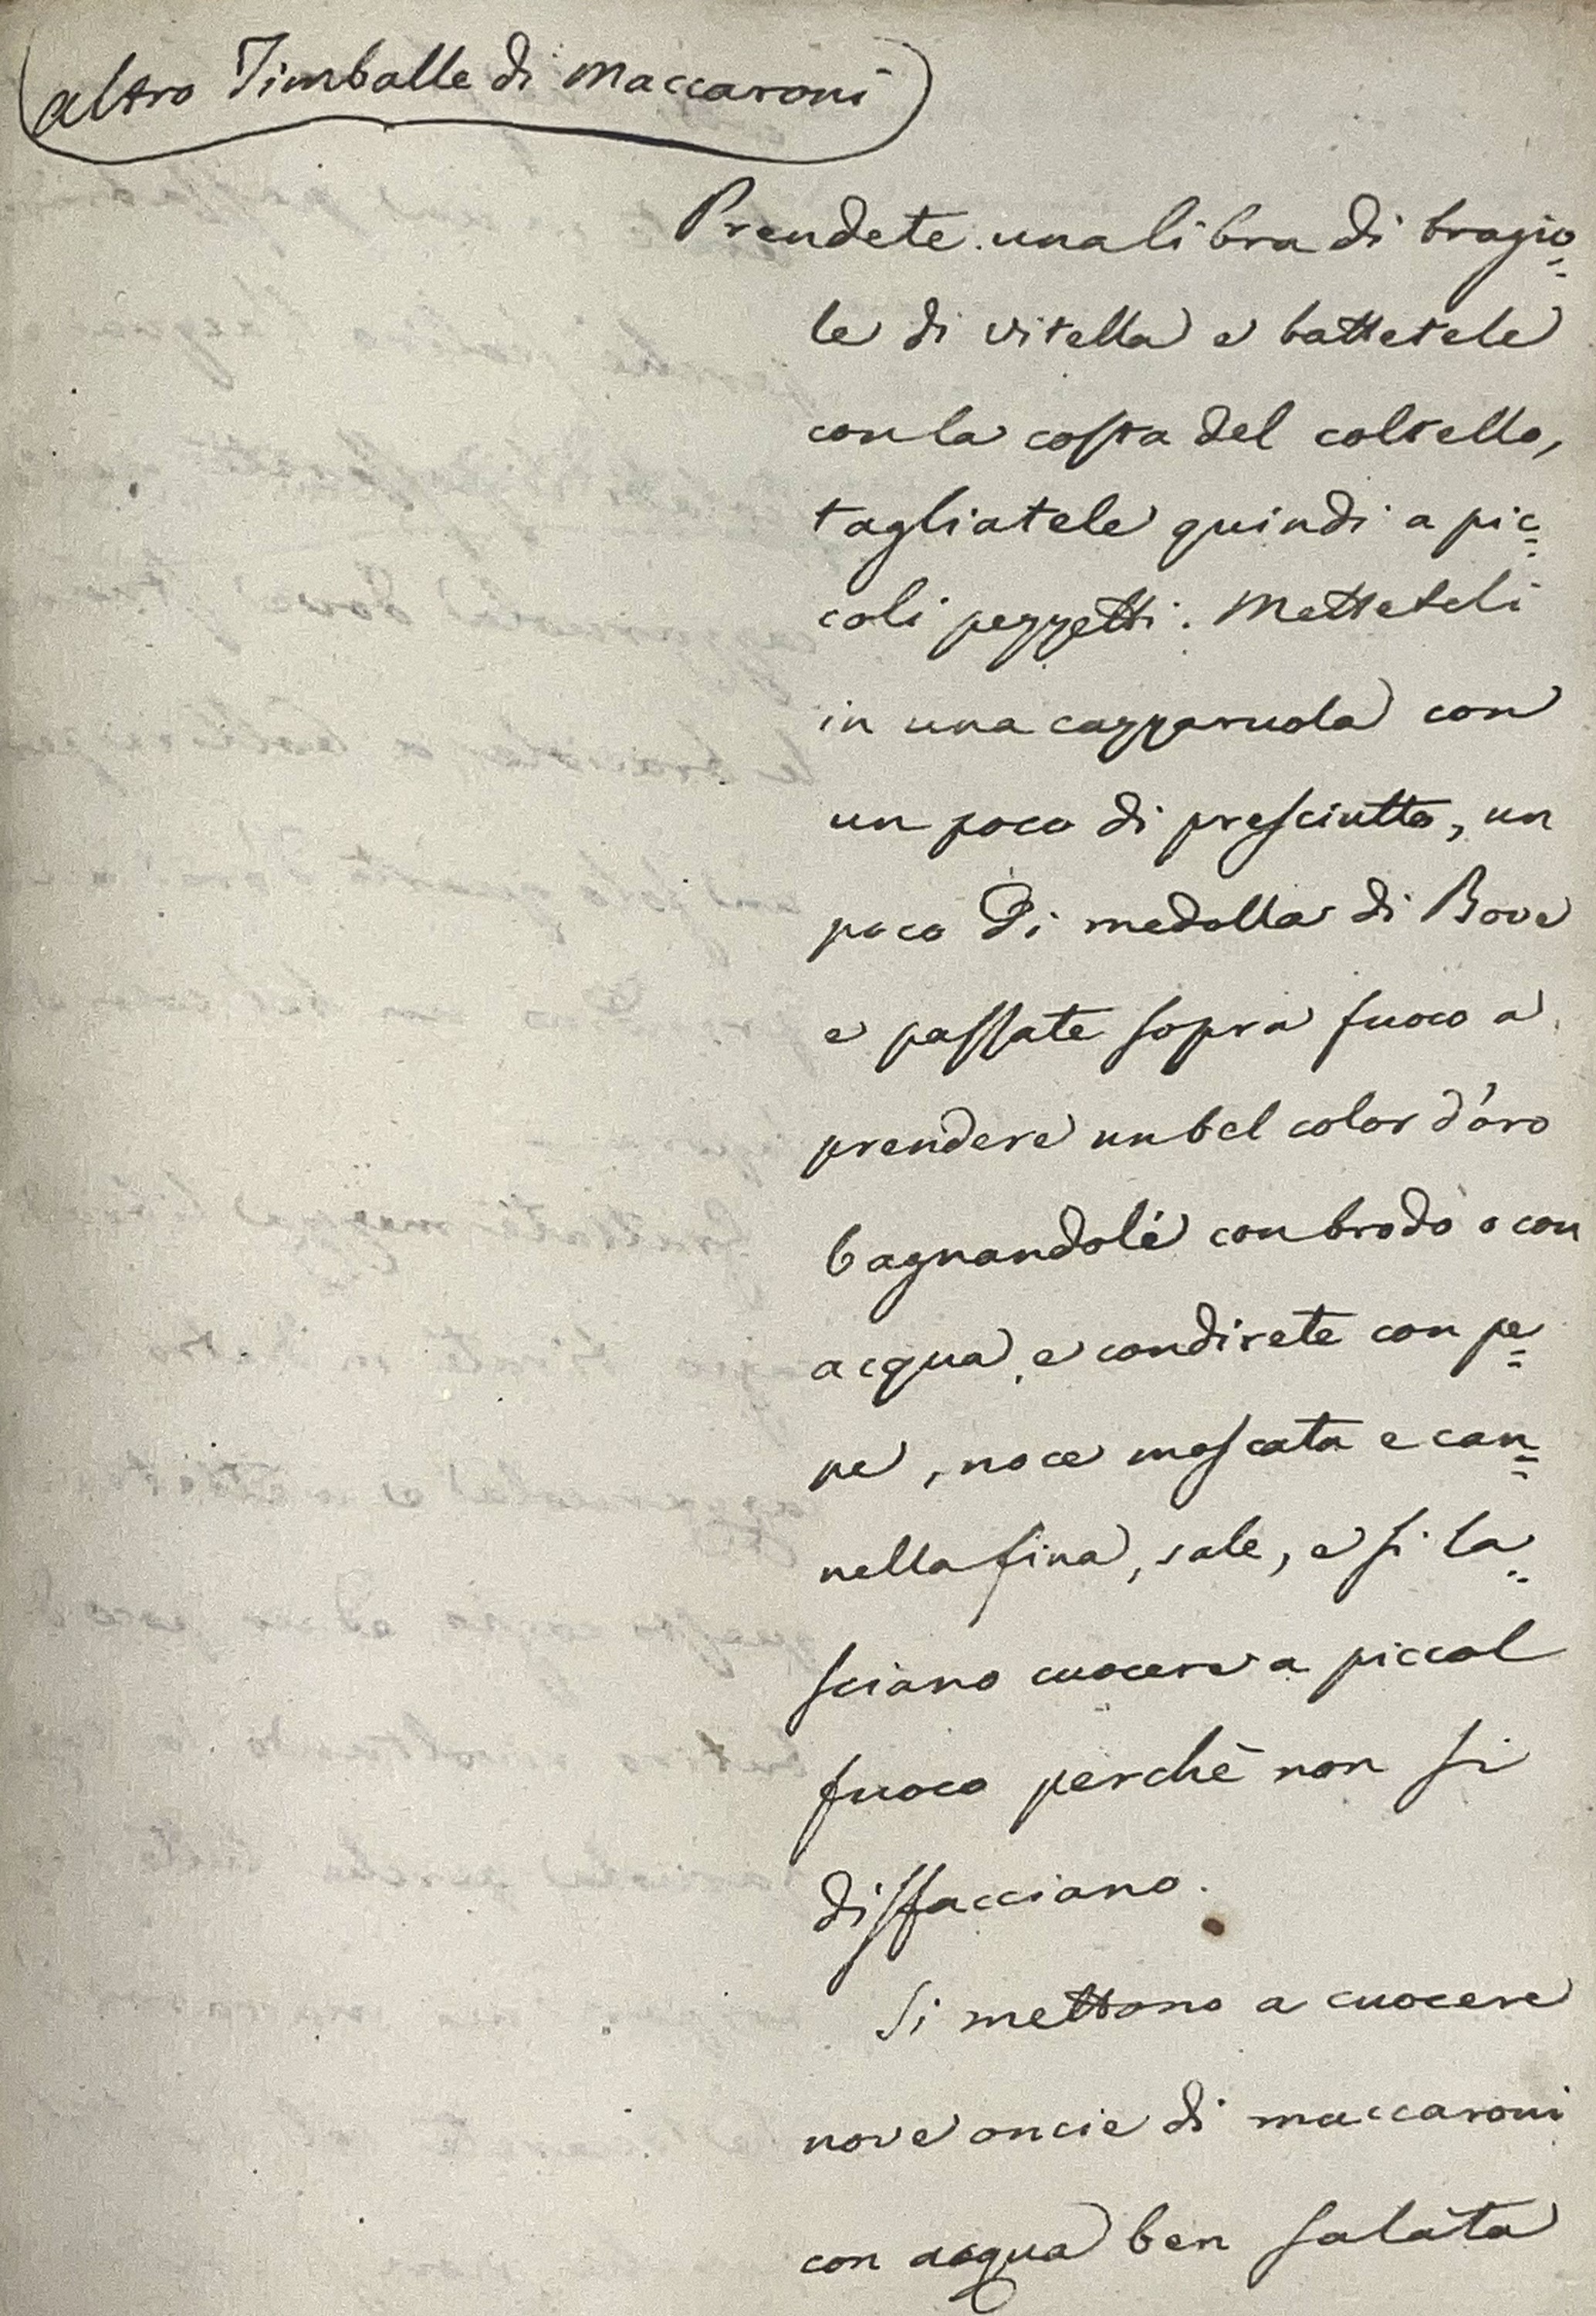 altro Timballe di Maccaroni
Prendete una libra di bragio=
le di vitella e battetele
con la costa del coltello,
tagliatele quindi a pic=
coli pezzetti. Metteteli
in una cazzaruola con
un poco di presciutto, un
poco di medolla di Bove
e passate sopra fuoco a
prendere un bel color d'oro
bagnandole con brodo o con
acqua, e condirete con pe=
pe, noce moscata e can=
nella fina, sale, e si la=
sciano cuocere a piccol
fuoco perchè non si
disfacciano.
Si mettono a cuocere
nove oncie di maccaroni
con acqua ben salata